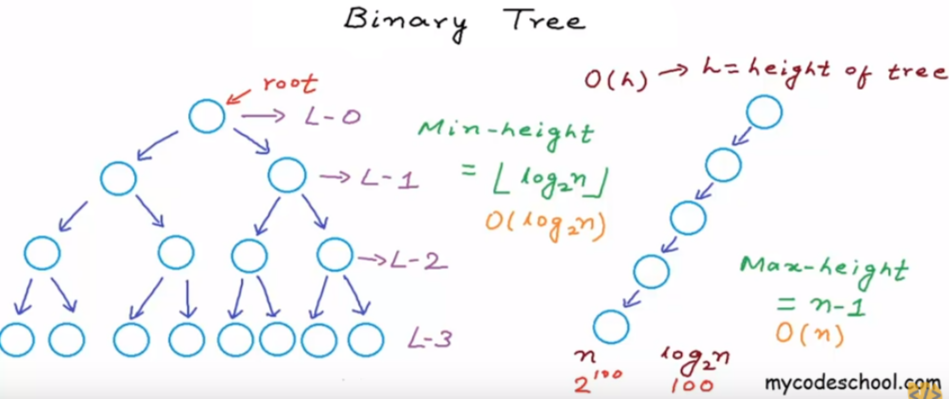 Binary Tree
root
L-0
L-1
L-2
L-3
Min-height
= ⌊log₂n⌋
O(log₂n)
O(h) → h = height of tree
Max-height
= n-1
O(n)
n log₂n
2¹⁰⁰ 100
mycodeschool.com
</>